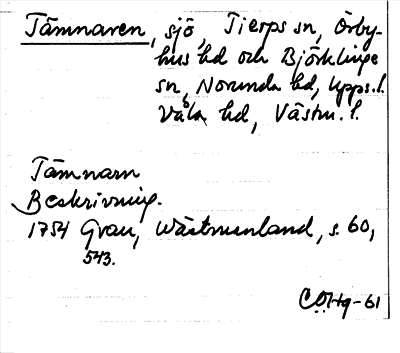 Tämnaren, sjö, Tierps sn, Örby-
hus hd och Björklinge
sn, Norunda hd, Upps. l.
Våla hd, Västm. l.
Tämnarn
Beskrivning.
1754 Grau, Wästmanland, s. 60,
543.
CÖHg-61